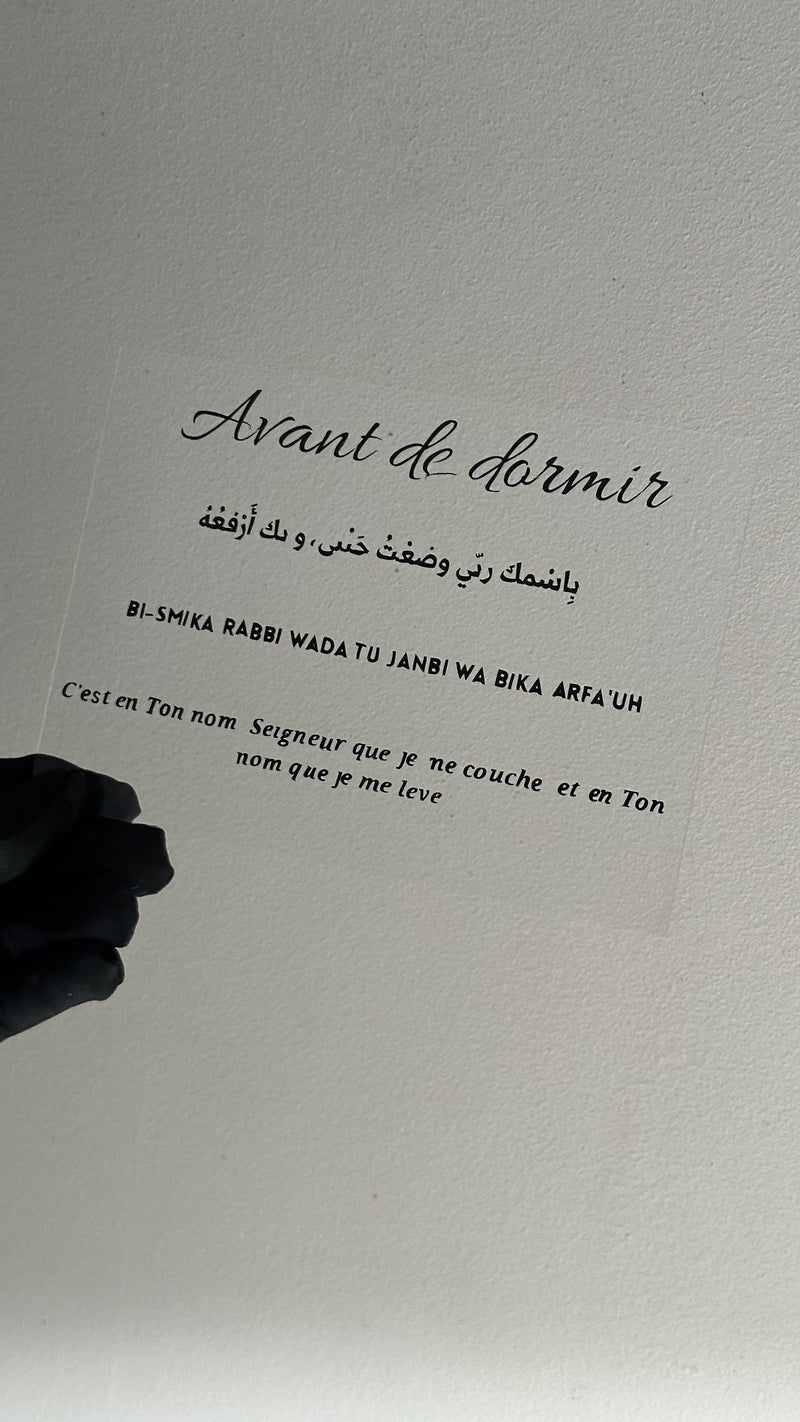 Avant de dormir
بِاسْمكَ ربّي وضعْتُ حَنىى، و ىك أَرْفعُهُ
BI-SMIKA RABBI WADA TU JANBI WA BIKA ARFA'UH
C'est en Ton nom Seigneur que je ne couche et en Ton
nom que je me leve